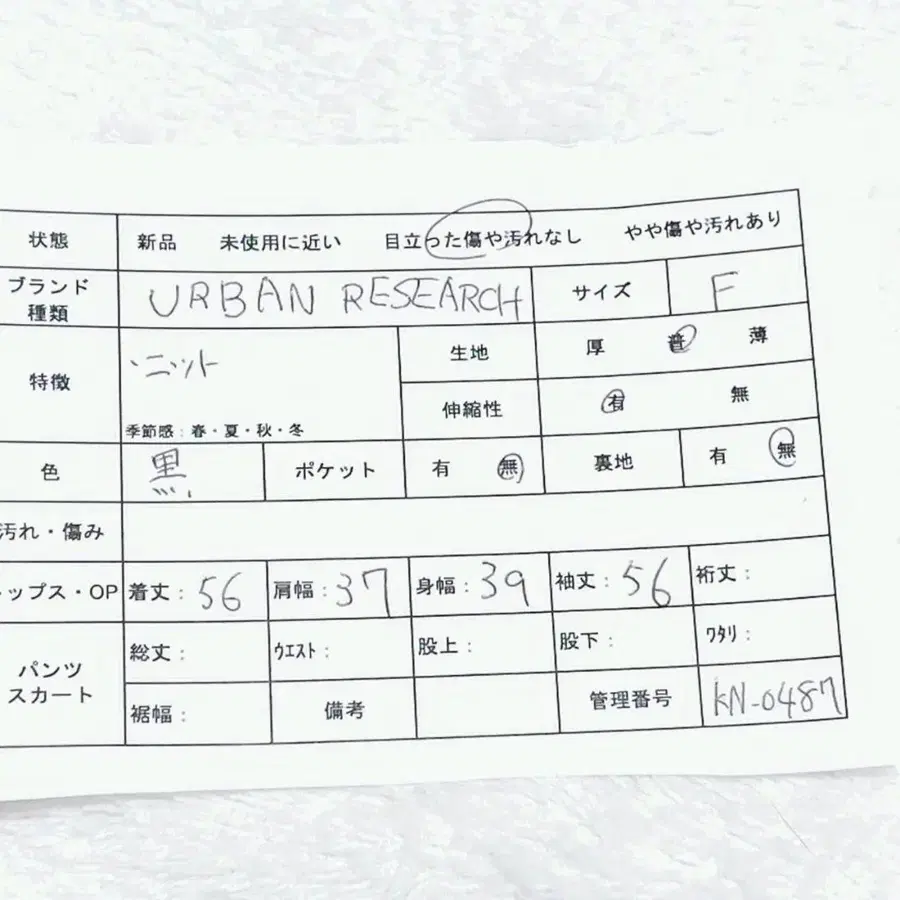 状態 新品 未使用に近い 目立った傷や汚れなし やや傷や汚れあり
ブランド種類 URBAN RESEARCH サイズ F
特徴 ・ニット
季節感:春・夏・秋・冬
生地 厚 普 薄
伸縮性 有 無
色 黒 ポケット 有 無 裏地 有 無
汚れ・傷み
ップス・OP 着丈:56 肩幅:37 身幅:39 袖丈:56 裄丈:
パンツ
スカート
総丈: ウエスト: 股上: 股下: ワタリ:
裾幅: 備考 管理番号 KN-0487